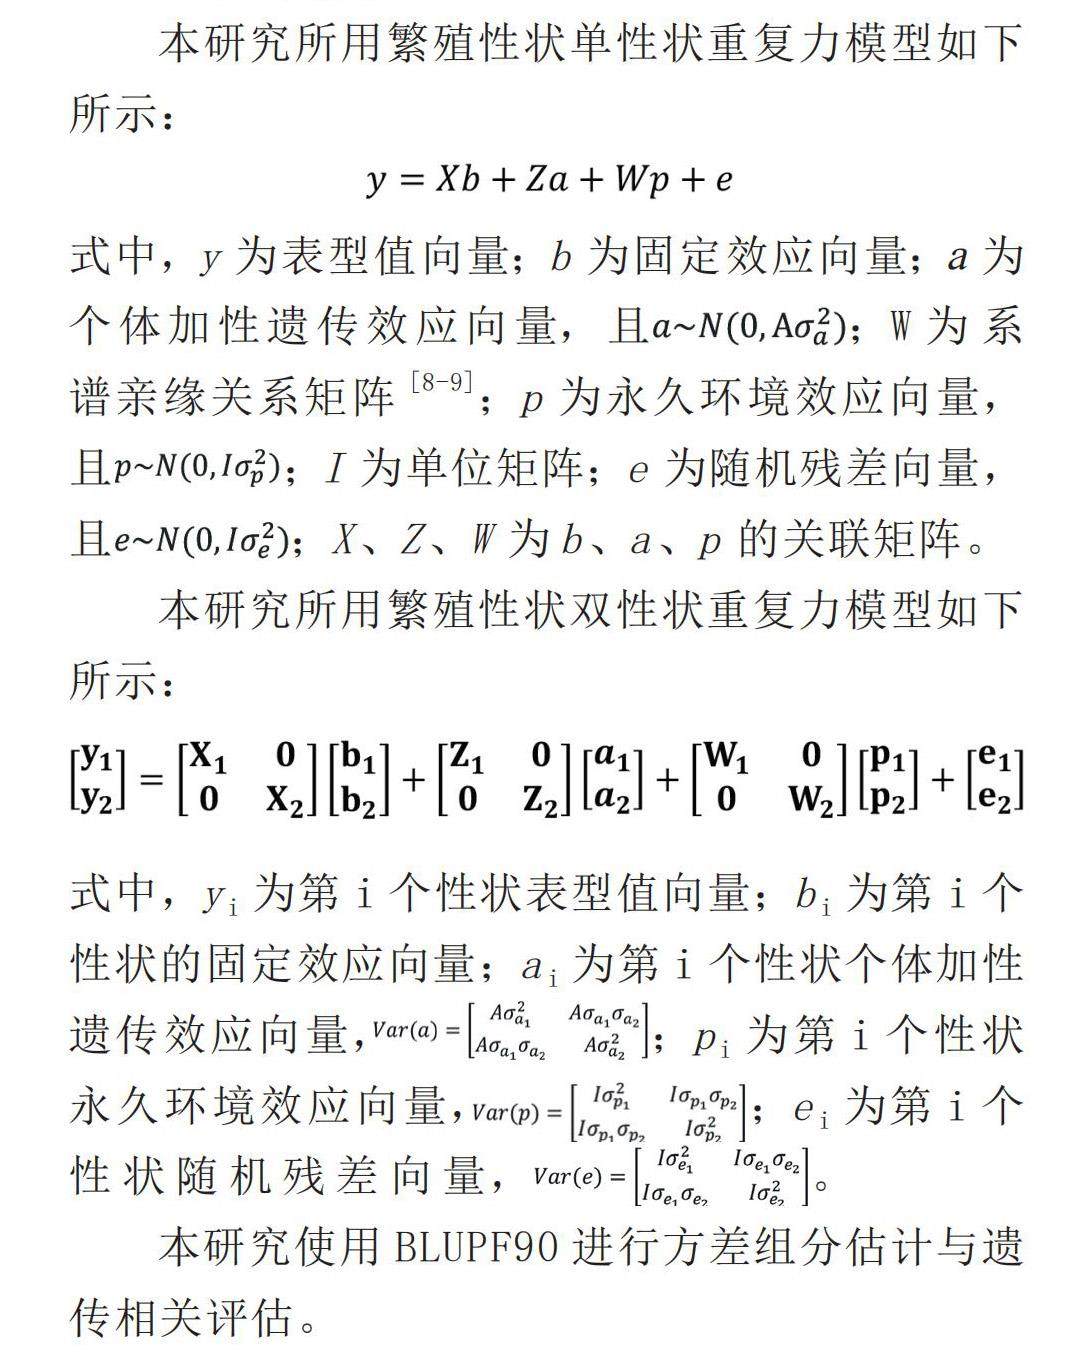 本研究所用繁殖性状单性状重复力模型如下
所示：
y = Xb + Za + Wp + e
式中，y 为表型值向量；b 为固定效应向量；a 为
个体加性遗传效应向量，且a~N(0, Aσ²ₐ)；W 为系
谱亲缘关系矩阵[8-9]；p 为永久环境效应向量，
且p~N(0, Iσ²ₚ)；I 为单位矩阵；e 为随机残差向量，
且e~N(0, Iσ²ₑ)；X、Z、W 为 b、a、p 的关联矩阵。
本研究所用繁殖性状双性状重复力模型如下
所示：
[y₁ y₂] = [X₁ 0 0 X₂][b₁ b₂] + [Z₁ 0 0 Z₂][a₁ a₂] + [W₁ 0 0 W₂][p₁ p₂] + [e₁ e₂]
式中，yᵢ 为第 i 个性状表型值向量；bᵢ 为第 i 个
性状的固定效应向量；aᵢ 为第 i 个性状个体加性
遗传效应向量，Var(a) = [Aσ²ₐ₁ Aσₐ₁σₐ₂ Aσₐ₁σₐ₂ Aσ²ₐ₂]；pᵢ 为第 i 个性状
永久环境效应向量，Var(p) = [Iσ²ₚ₁ Iσₚ₁σₚ₂ Iσₚ₁σₚ₂ Iσ²ₚ₂]；eᵢ 为第 i 个
性状随机残差向量，Var(e) = [Iσ²ₑ₁ Iσₑ₁σₑ₂ Iσₑ₁σₑ₂ Iσ²ₑ₂]。
本研究使用 BLUPF90 进行方差组分估计与遗
传相关评估。